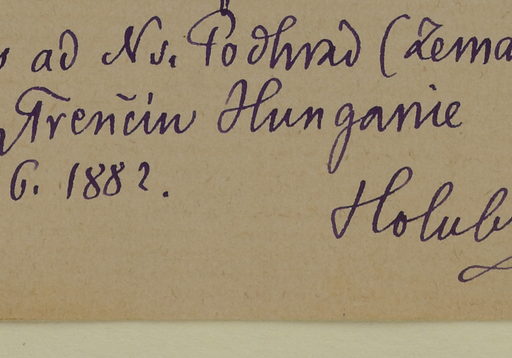 ad Ns. Podhrad (Zema
Trenčin Hungariæ
6. 1882.
Holub